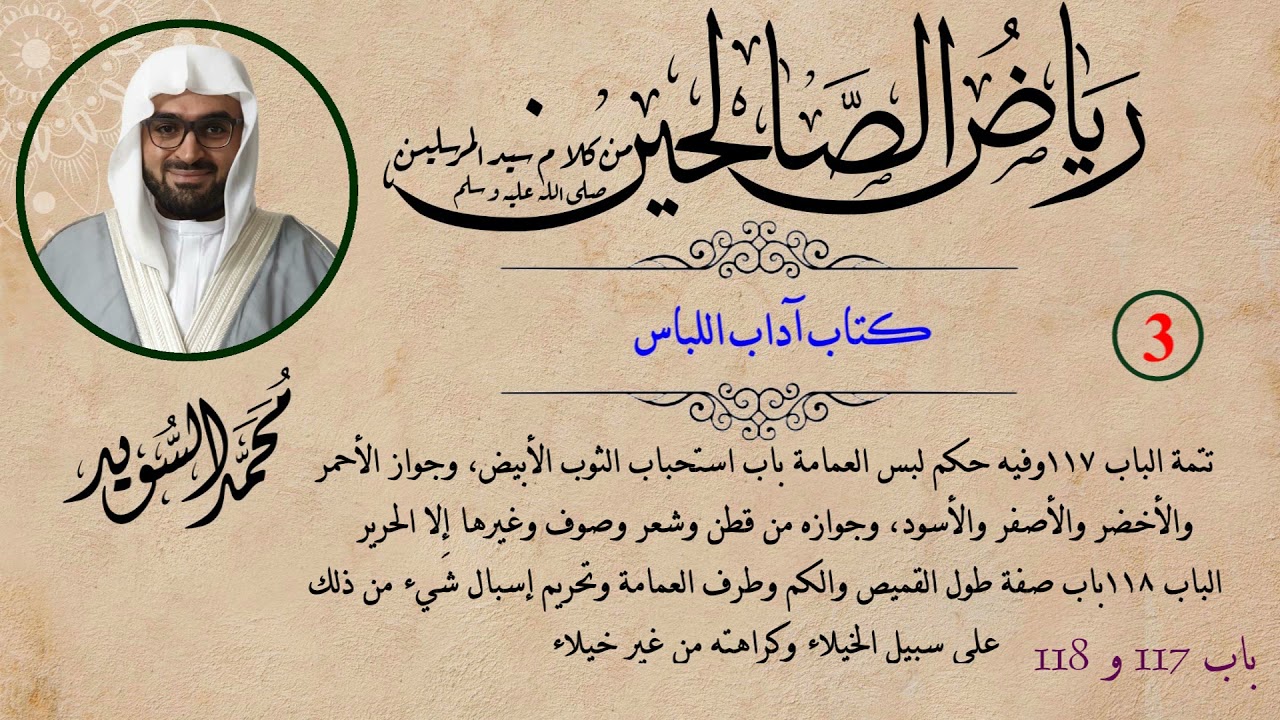 رِيَاضُ الصَّالحين
من كلام سيد المرسلين
صلى الله عليه وسلم
كتاب آداب اللباس
3
مُحَمَّد السُّوَيِد
تتمة الباب ١١٧وفيه حكم لبس العمامة باب استحباب الثوب الأبيض، وجواز الأحمر
والأخضر والأصفر والأسود، وجوازه من قطن وشعر وصوف وغيرها إِلا الحرير
الباب ١١٨باب صفة طول القميص والكم وطرف العمامة وتحريم إسبال شيء من ذلك
على سبيل الخيلاء وكراهته من غير خيلاء
باب 117 و 118